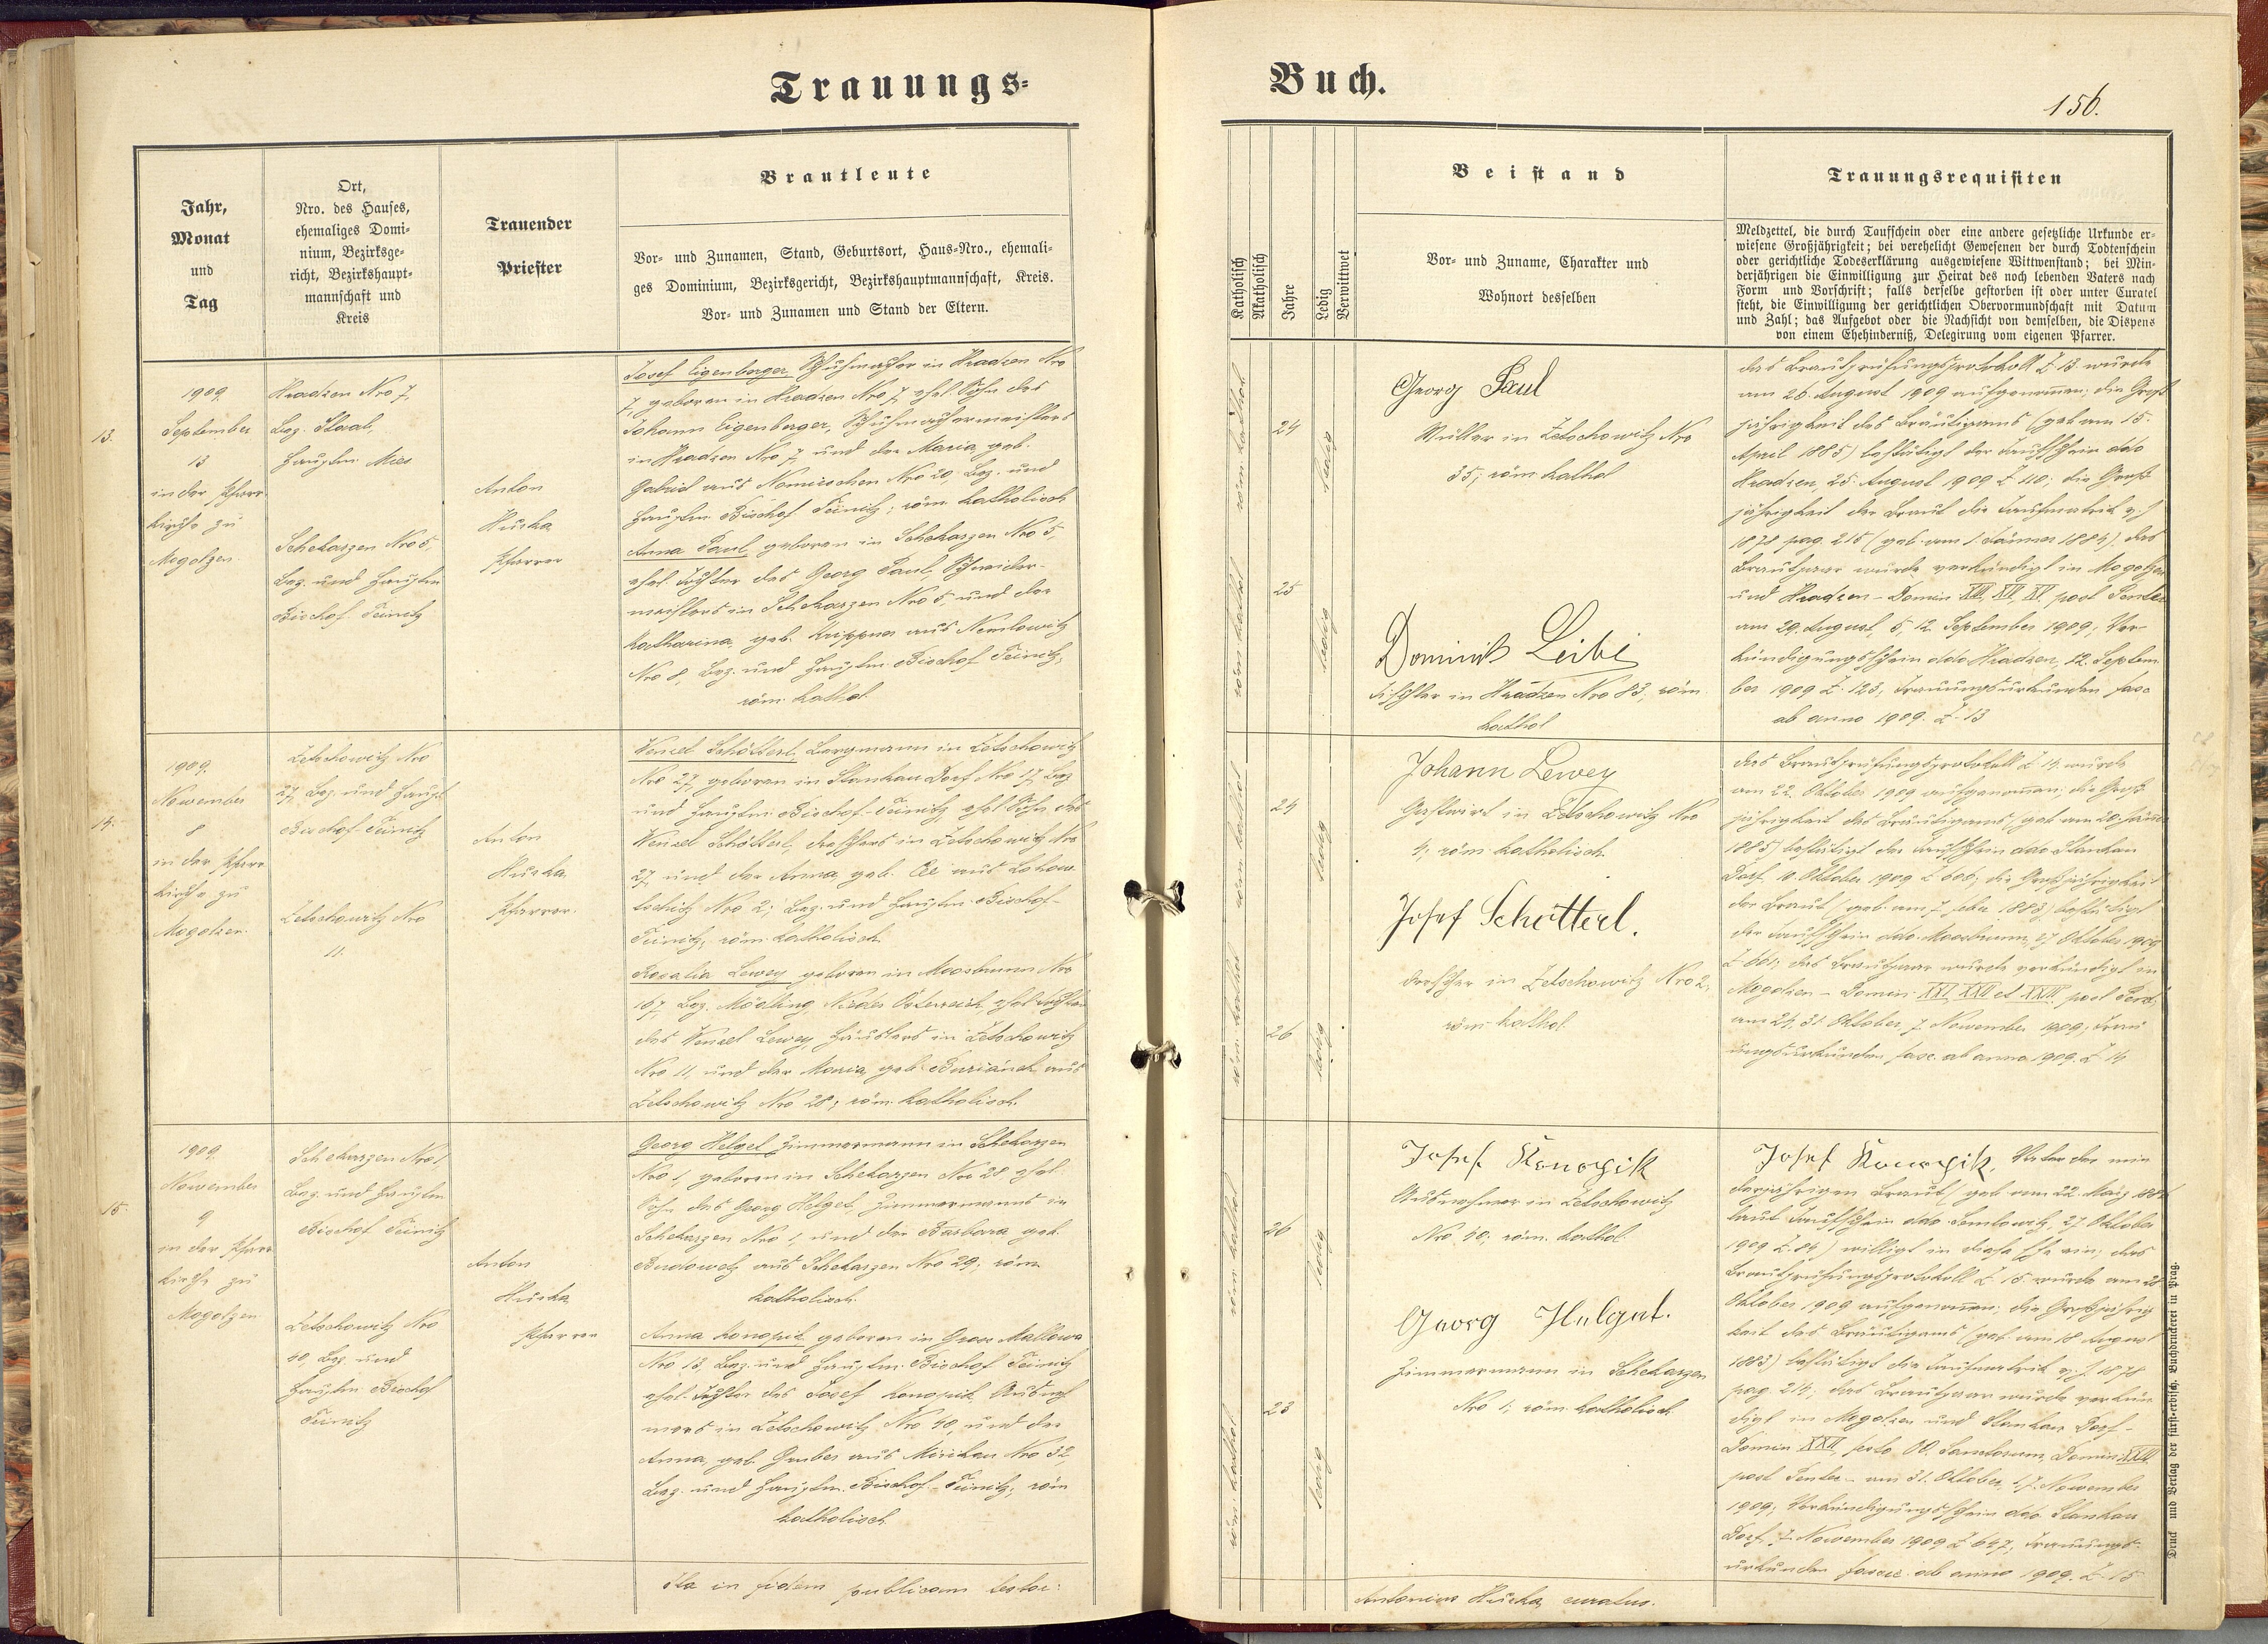 Trauungs-
Buch.
156.
Jahr,
Monat
und
Tag
Ort,
Nro. des Hauses,
ehemaliges Domi-
nium, Bezirksge-
richt, Bezirkshaupt-
mannschaft und
Kreis
Trauender
Priester
Brautleute
Vor- und Zunamen, Stand, Geburtsort, Haus-Nro., ehemali-
ges Dominium, Bezirksgericht, Bezirkshauptmannschaft, Kreis.
Vor- und Zunamen und Stand der Eltern.
Katholisch
Akatholisch
Jahre
Ledig
Verwittwet
Beistand
Vor- und Zuname, Charakter und
Wohnort desselben
Trauungsrequisiten
Meldzettel, die durch Taufschein oder eine andere gesetzliche Urkunde er-
wiesene Großjährigkeit; bei verehelicht Gewesenen der durch Todtenschein
oder gerichtliche Todeserklärung ausgewiesene Wittwenstand; bei Min-
derjährigen die Einwilligung zur Heirat des noch lebenden Vaters nach
Form und Vorschrift; falls derselbe gestorben ist oder unter Curatel
steht, die Einwilligung der gerichtlichen Obervormundschaft mit Datum
und Zahl; das Aufgebot oder die Nachsicht von demselben, die Dispens
von einem Ehehinderniß, Delegirung vom eigenen Pfarrer.
13.
1909
September
13
in der Pfarr
kirche zu
Mogolzen
Hradzen Nro 7,
Bez. Staab,
Hauptm. Mies
Schekarzen Nro 5,
Bez. und Hauptm
Bischof Teinitz
Anton
Huska
Pfarrer
Josef Eigenberger, Schuhmacher in Hradzen Nro
7, geboren in Hradzen Nro 7, ehel. Sohn des
Johann Eigenberger, Schuhmachermeisters
in Hradzen Nro 7, und der Maria, geb.
Gabriel aus Nro 20, Bez. und
Hauptm. Bischof Teinitz; röm. katholisch
Anna Paul, geboren in Schekarzen Nro 5,
ehel. Tochter des Georg Paul, Schneider-
meisters in Schekarzen Nro 5, und der
Katharina, geb. Krippner aus Nemlowitz
Nro 8, Bez. und Hauptm. Bischof Teinitz;
röm. kathol.
röm. katholisch
24
ledig
röm. kathol.
25
ledig
Georg Paul
Müller in Zetschowitz Nro
35; röm. kathol
Dominik Leibl
Tischler in Hradzen Nro 83; röm.
kathol
das Brautprüfungsprotokoll Z. 13 wurde
am 26. August 1909 aufgenommen; die Groß
jährigkeit des Bräutigams (geb. am 15.
April 1885) bestätigt der Taufschein ddo
Hradzen, 25. August 1909 Z. 110; die Groß
jährigkeit der Braut die Taufmatrik
1878 pag. 215 (geb. am 1. Jänner 1884); das
Brautpaar wurde verkündigt in Mogolzen
und Hradzen – Domin. XIII, XIV, XV post Pentec
am 29. August, 5., 12. September 1909; Ver-
kündigungsschein ddo Hradzen, 12. Septem
ber 1909 Z. 123; Trauungsurkunden fasc
ab anno 1909. Z. 13
14.
1909.
November
8
in der Pfarr
kirche zu
Mogolzen.
Zetschowitz Nro
27, Bez. und Haupt
Bischof-Teinitz
Zetschowitz Nro
11.
Anton
Huska
Pfarrer.
Wenzel Schötterl, Bergmann in Zetschowitz
Nro 27, geboren in Stankau Dorf Nro 17, Bez
und Hauptm. Bischof-Teinitz, ehel. Sohn des
Wenzel Schötterl, Dreschers in Zetschowitz Nro
27 und der Anna, geb. aus
Nro 2; Bez. und Hauptm. Bischof-
Teinitz; röm. katholisch.
Rosalia Lewey geboren in Moosbrunn Nro
167, Bez. Mödling, Nieder Österreich, ehel. Tochter
des Wenzel Lewey, Häuslers in Zetschowitz
Nro 11, und der Maria geb. Burianek aus
Zetschowitz Nro 28; röm. katholisch.
röm. kathol
24
ledig
röm. kathol
26
ledig
Johann Lewey
Gastwirt in Zetschowitz Nro
4; röm. katholisch.
Josef Schötterl.
Drescher in Zetschowitz Nro 2;
röm. kathol.
das Brautprüfungsprotokoll Z. 14 wurde
am 22. Oktober 1909 aufgenommen; die Groß
jährigkeit des Bräutigams (geb. am 20. Jänn
1885) bestätigt der Taufschein ddo Stankau
Dorf, 10. Oktober 1909 Z. 606; die Großjährigkeit
der Braut (geb. am 7. 1883) bestätigt
der Taufschein ddo. Moosbrunn, 17. Oktober 1909
Z. 601; das Brautpaar wurde verkündigt in
Mogolzen – Domin. XXI, XXII et XXIII post Pent.
am 24., 31. Oktober, 7. November 1909; Trau
ungsurkunden fasc. ab anno 1909. Z. 14
15.
1909.
November
9
in der Pfarr
kirche zu
Mogolzen
Schekarzen Nro 1,
Bez. und Hauptm.
Bischof Teinitz
Zetschowitz Nro
40, Bez. und
Hauptm. Bischof
Teinitz
Anton
Huska
Pfarrer
Georg Helget, Zimmermann in Schekarzen
Nro 1, geboren in Schekarzen Nro 28, ehel.
Sohn des Georg Helget, Zimmermanns in
Schekarzen Nro 1, und der Barbara geb.
aus Schekarzen Nro 29; röm.
katholisch.
Anna Konopik, geboren in Gross Mallowa
Nro 13, Bez. und Hauptm. Bischof Teinitz
ehel. Tochter des Josef Konopik, Ausneh
mers in Zetschowitz Nro 40, und der
Anna, geb. Gruber aus Mirikau Nro 32,
Bez. und Hauptm. Bischof-Teinitz; röm
katholisch
röm. kathol
26
ledig
röm. kathol
23
ledig
Josef Konopik
Ausnehmer in Zetschowitz
Nro 40; röm. kathol.
Georg Helget.
Zimmermann in Schekarzen
Nro 1; röm. katholisch.
Josef Konopik, Vater der min
derjährigen Braut (geb. am 22. März
laut Taufschein ddo. Semlowitz, 27. Oktober
1909 Z. 84) willigt in diese Ehe ein; das
Brautprüfungsprotokoll Z. 15 wurde am 28
Oktober 1909 aufgenommen; die Großjährig
keit des Bräutigams (geb. am 18. August
1883) bestätigt die Taufmatrik 1878
pag. 214; das Brautpaar wurde verkün
digt in Mogolzen und Stankau Dorf –
Domin. XXII, festo OO. Sanctorum, Domin. XXIII
post Pentec. – am 31. Oktober, 1., 7. November
1909; Verkündigungsschein ddo. Stankau
Dorf, 7. November 1909 Z. 647; Trauungs-
urkunden ab anno 1909. Z. 15
Ita in fidem publicam testor:
Antonius Huska, curatus.
Druck und Verlag der fürst-erzbisch. Buchdruckerei in Prag.